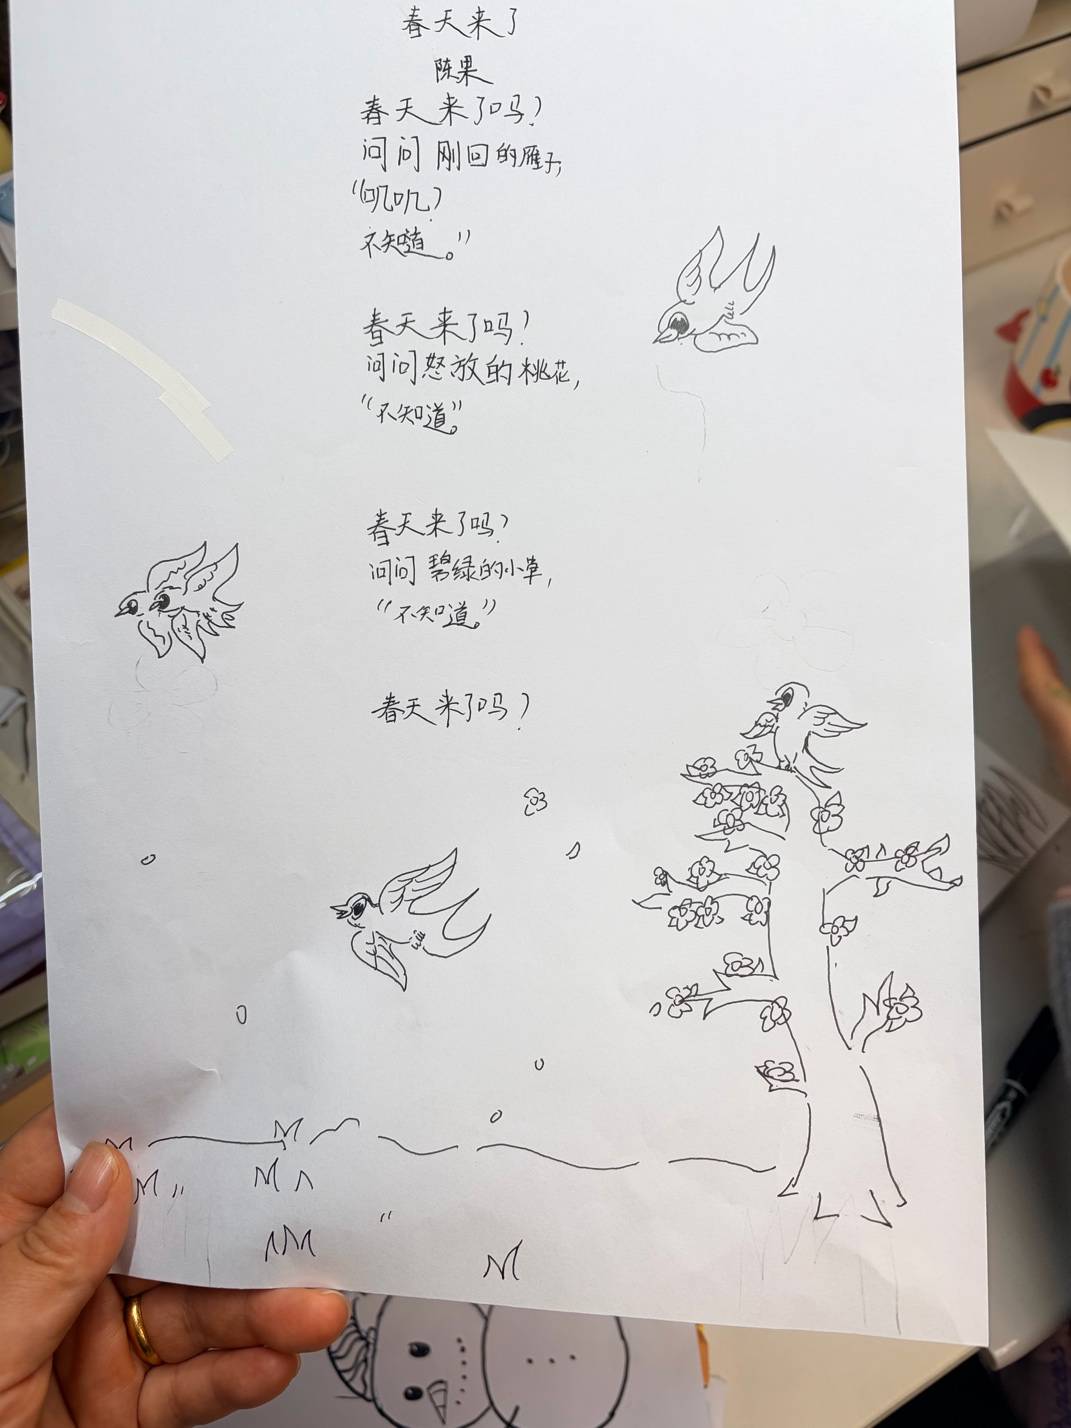 春天来了
陈果
春天来了吗？
问问刚回的雁子，
“叽叽？
不知道。”
春天来了吗？
问问怒放的桃花，
“不知道”。
春天来了吗？
问问碧绿的小草，
“不知道。”
春天来了吗？